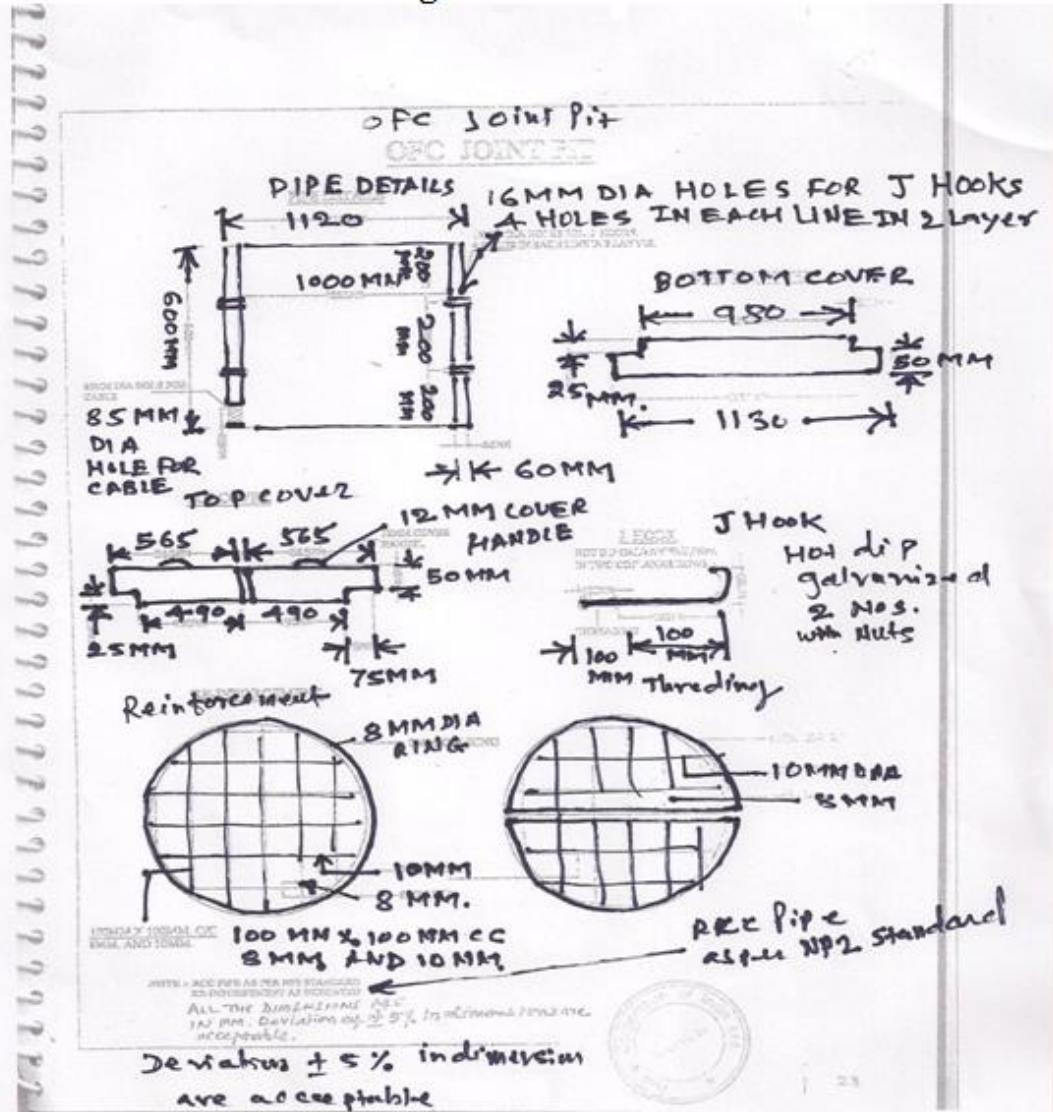 OFC Joint Pit
OFC JOINT PIT
PIPE DETAILS
1120
16MM DIA HOLES FOR J HOOKS
4 HOLES IN EACH LINE IN 2 Layer
1000MM
600MM
200 MM
200 MM
200 MM
BOTTOM COVER
980
25MM.
50 MM
1130
85MM
DIA
HOLE FOR
CABLE
60MM
TOP COVER
565
565
12 MM COVER
HANDLE
50MM
490
490
25MM
75MM
J HOOK
J Hook
Hot dip
galvanized
2 Nos.
with Nuts
100
MM
100
MM
Threding
Reinforcement
8 MM DIA
RING
10MM
8 MM.
10MM DIA
8MM
100 MM X 100MM CC
8MM AND 10MM
RCC Pipe
as per NP2 Standard
NOTE :- RCC PIPE AS PER NP2 STANDARD
ALL THE DIMENSIONS ARE
IN MM. Deviation of ± 5% in dimensions are
acceptable.
Deviation ± 5% in dimersion
are acceptable
23